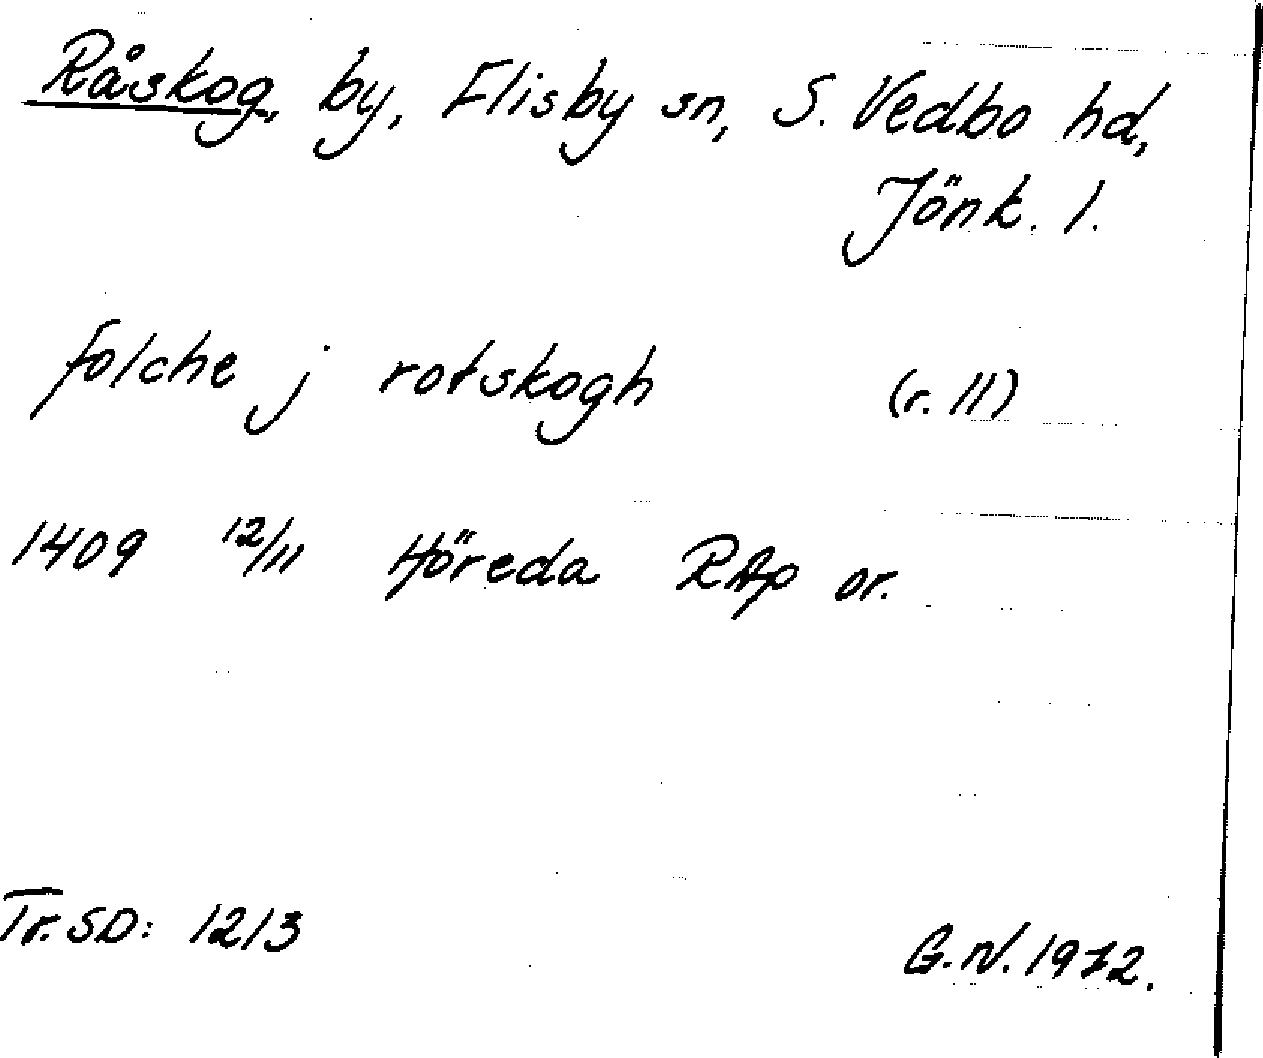 Råskog, by, Flisby sn, S. Vedbo hd,
Jönk. l.
folche j rotskogh (r. 11)
1409 12/11 Höreda RAp or.
Tr. SD: 1213
G.N. 1972.